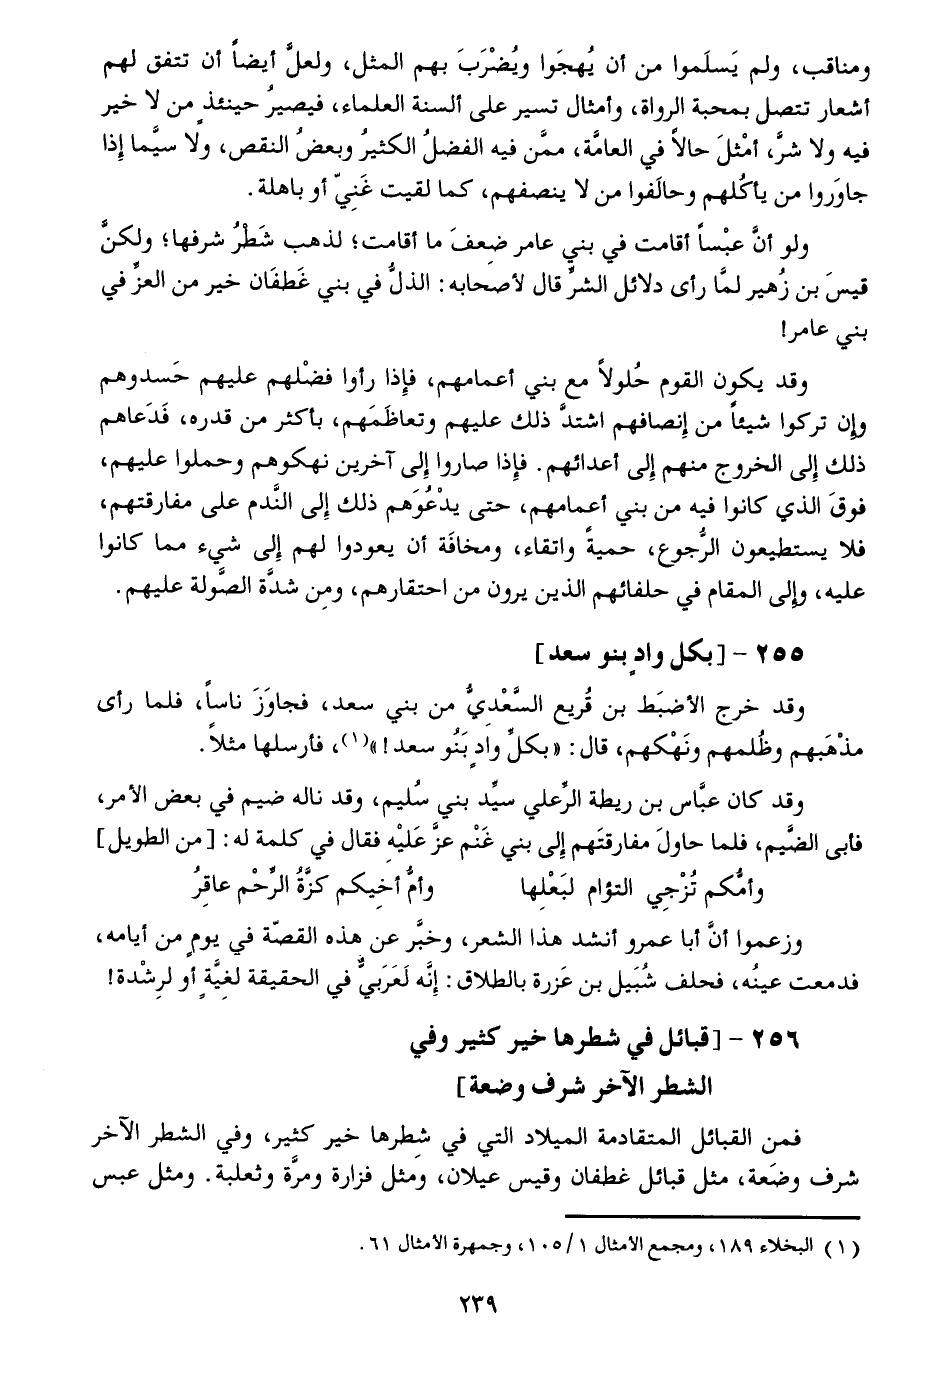 ومناقب، ولم يَسلَموا من أن يُهجَوا ويُضْرَبَ بهم المثل، ولعلَّ أيضاً أن تتفق لهم
أشعار تتصل بمحبة الرواة، وأمثال تسير على ألسنة العلماء، فيصيرُ حينئذٍ من لا خير
فيه ولا شرَّ، أمْثلَ حالاً في العامَّة، ممَّن فيه الفضلُ الكثيرُ وبعضُ النقص، ولا سيَّما إذا
جاوَروا من يأكُلهم وحالَفوا من لا ينصفهم، كما لقيت غَنيّ أو باهلة.
ولو أنَّ عبْساً أقامت في بني عامر ضعفَ ما أقامت؛ لذهب شَطْرُ شرفها؛ ولكنَّ
قيسَ بن زُهير لمَّا رأى دلائل الشرِّ قال لأصحابه: الذلُّ في بني غَطفَان خير من العزِّ في
بني عامر!
وقد يكون القوم حُلولاً مع بني أعمامهم، فإذا رأوا فضْلهم عليهم حَسدوهم
وإن تركوا شيئاً من إنصافهم اشتدَّ ذلك عليهم وتعاظَمَهم، بأكثر من قدره، فَدَعاهم
ذلك إلى الخروج منهم إلى أعدائهم. فإذا صاروا إلى آخرين نهكوهم وحملوا عليهم،
فوقَ الذي كانوا فيه من بني أعمامهم، حتى يدْعُوَهم ذلك إلى النَّدم على مفارقتهم،
فلا يستطيعون الرُّجوع، حميةً واتقاء، ومخافَة أن يعودوا لهم إلى شيء مما كانوا
عليه، وإلى المقام في حلفائهم الذين يرون من احتقارهم، ومِن شدَّة الصَّولة عليهم.
٢٥٥ - [بكل وادٍ بنو سعد]
وقد خرج الأضبَط بن قُريع السَّعْديُّ من بني سعد، فجاوَرَ ناساً، فلما رأى
مذْهَبهم وظُلمهم ونَهْكهم، قال: «بكلِّ وادٍ بَنُو سعد!»(١)، فأرسلها مثلاً.
وقد كان عبَّاس بن ريطة الرِّعلي سيِّد بني سُليم، وقد ناله ضيم في بعض الأمر،
فأبى الضَّيم، فلما حاولَ مفارقتَهم إلى بني غَنْم عزَّ عَليْهِ فقال في كلمة له: [من الطويل]
وأمُّكم تُزْجي التؤام لبَعْلها وأمُّ أخيكم كزَّةُ الرِّحْم عاقِرُ
وزعموا أنَّ أبا عمرو أنشد هذا الشعر، وخبَّر عن هذه القصّة في يومٍ من أيامه،
فدمعت عينُه، فحلف شُبَيل بن عَزرة بالطلاق: إنَّه لَعَرَبيٌّ في الحقيقة لغيَّةٍ أو لرِشْدة!
٢٥٦ - [قبائل في شطرها خير كثير وفي
الشطر الآخر شرف وضعة]
فمن القبائل المتقادمة الميلاد التي في شِطرها خير كثير، وفي الشطر الآخر
شرف وضَعة، مثل قبائل غطفان وقيس عيلان، ومثل فزارة ومرَّة وثعلبة. ومثل عبس
(١) البخلاء ١٨٩، ومجمع الأمثال ١٠٥/١، وجمهرة الأمثال ٦١.
٢٣٩